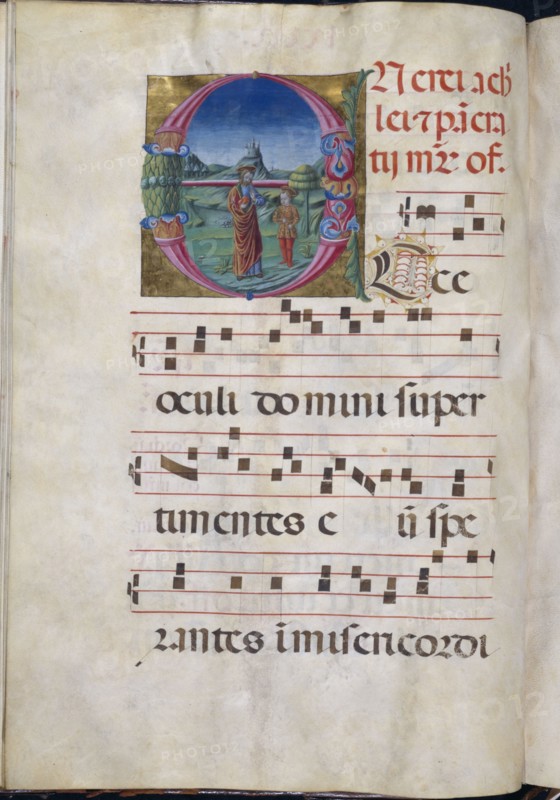 N erei ach
lei ⁊ pācra
tij mr̄ of.
Ecce
oculi domini super
timentes e ū spe
rantes ī misericordi